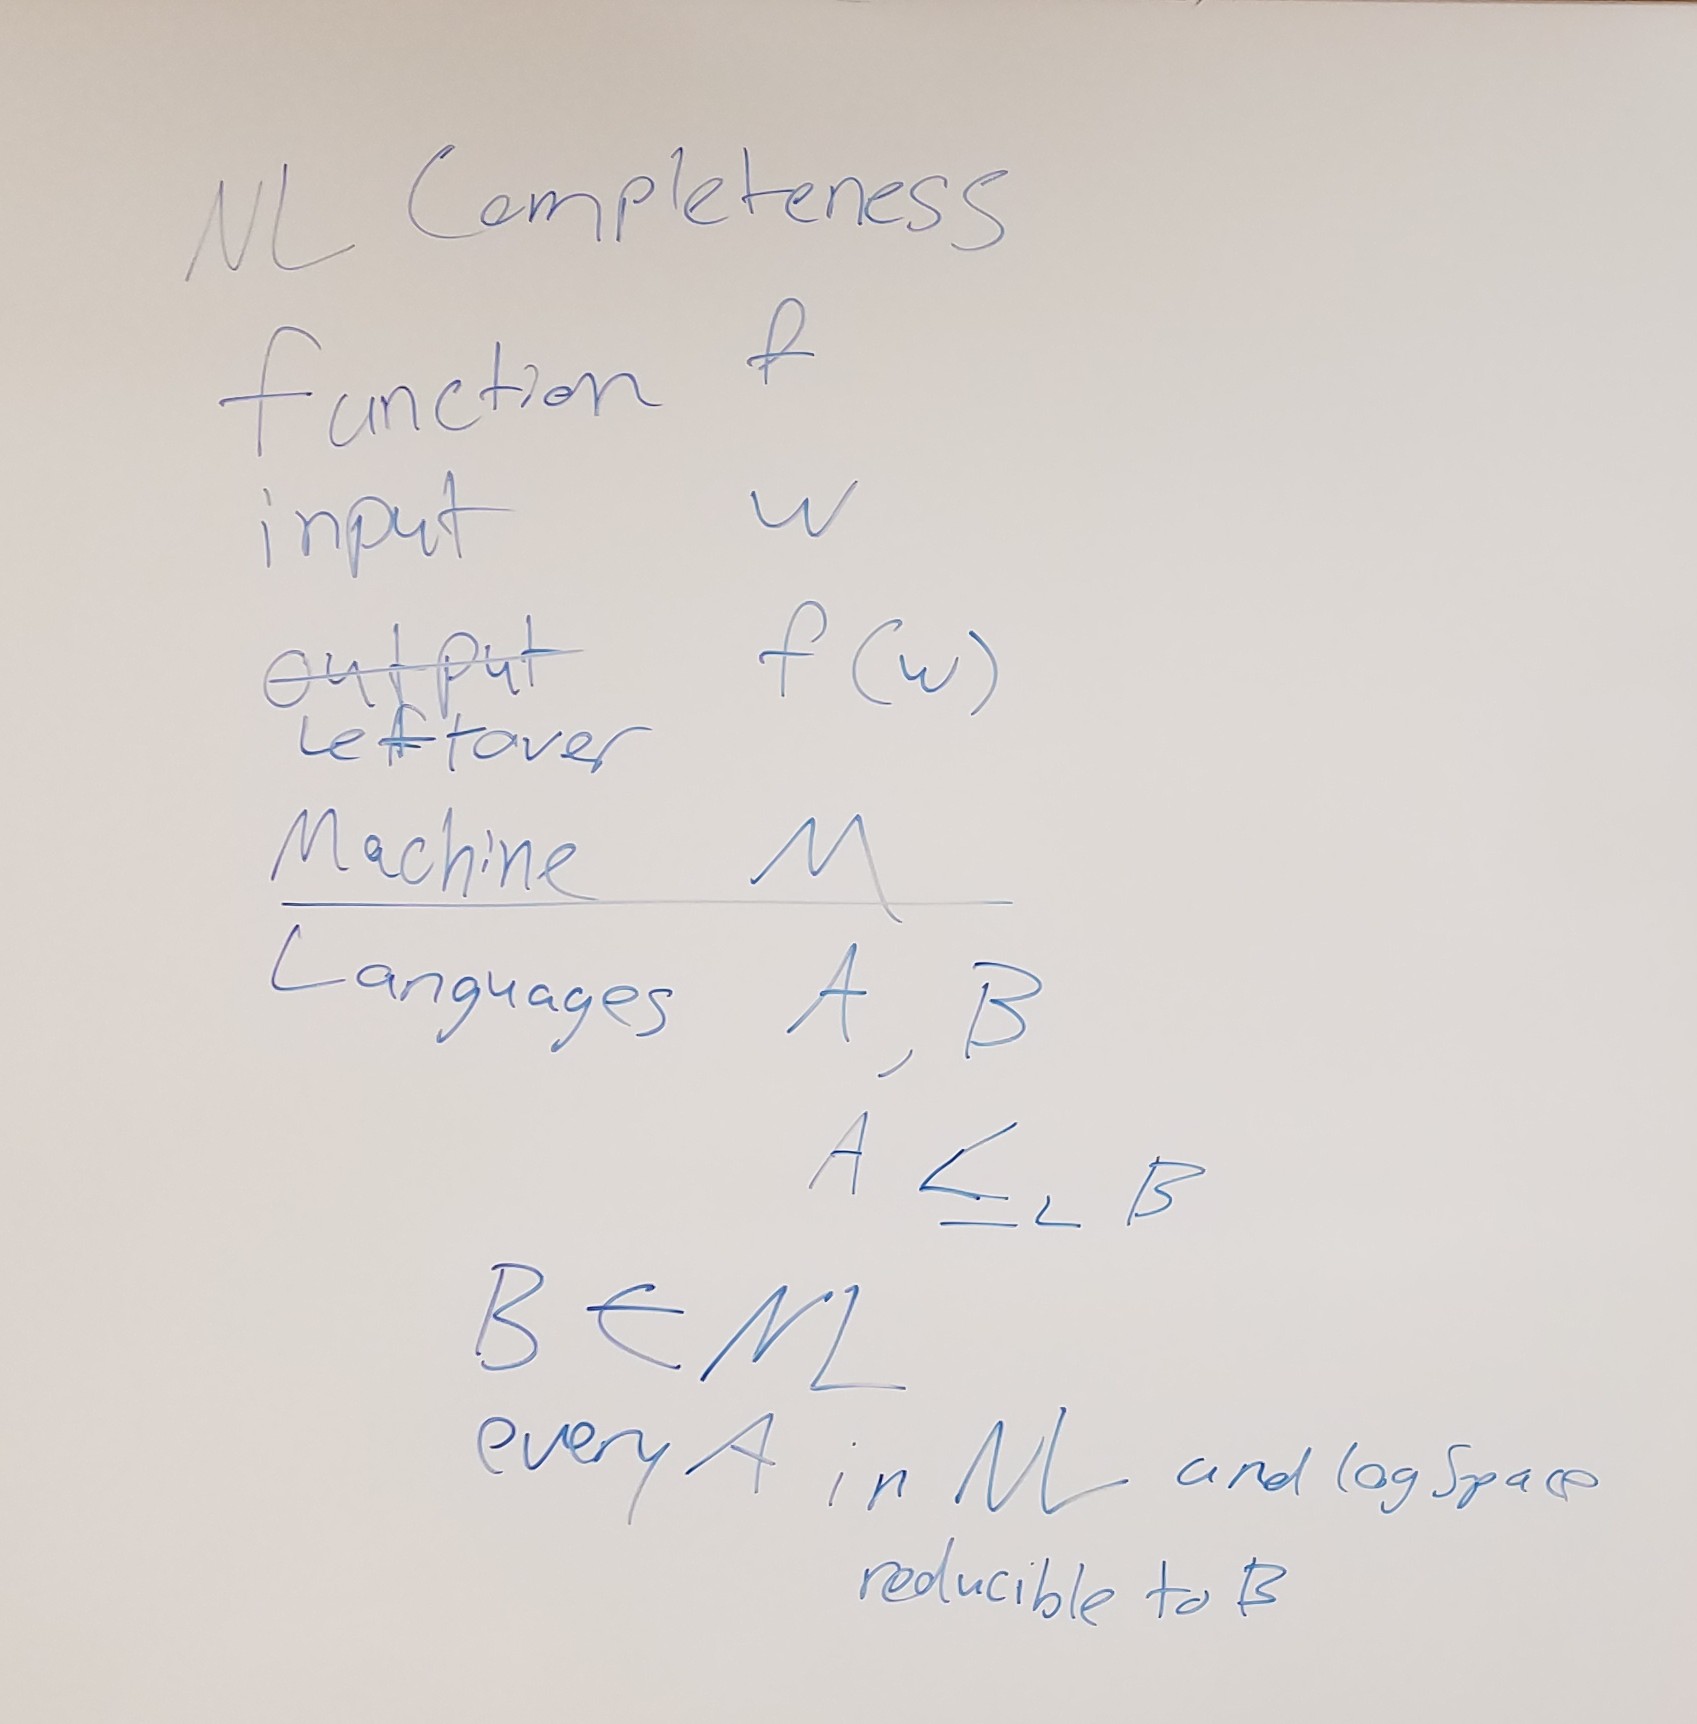 NL Completeness
function f
input w
output f(w)
Leftover
Machine M
Languages A, B
A ≤L B
B ∈ NL
every A in NL and log space
reducible to B